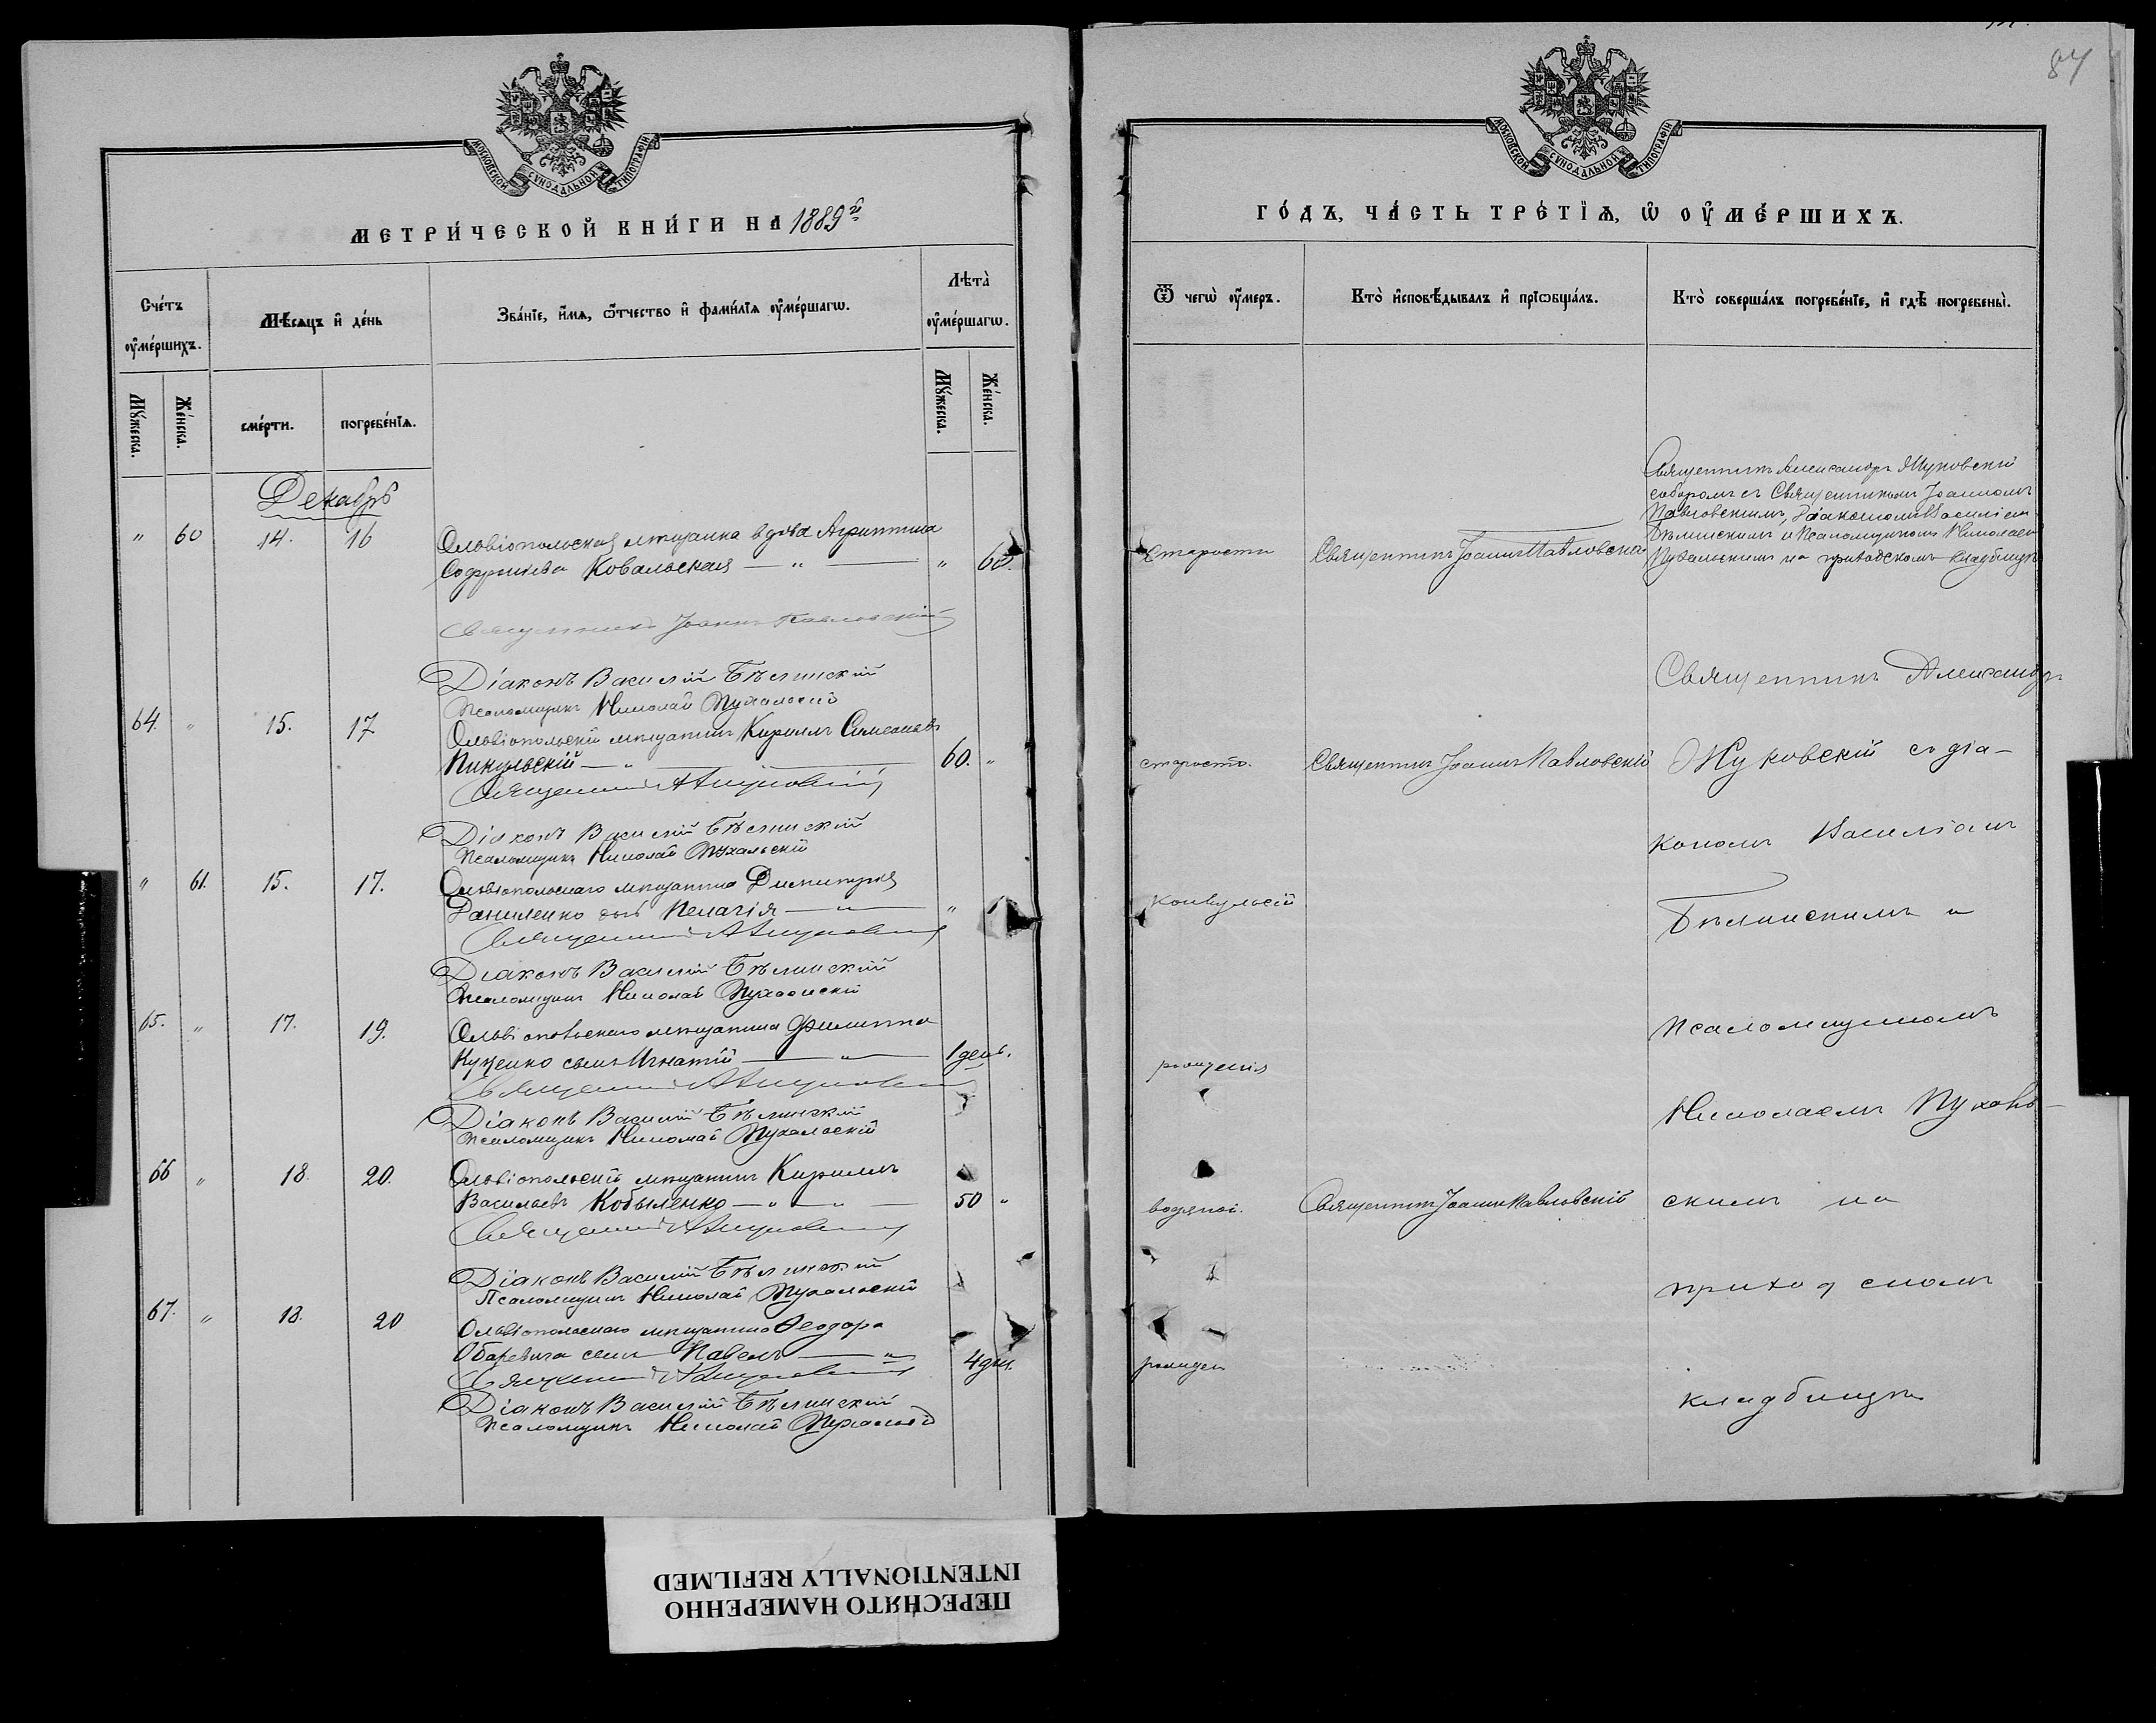 МОСКОВСКОЙ СѴНОДАЛЬНОЙ ТИПОГРАФІИ
МЕТРИ́ЧЕСКОЙ КНИ́ГИ НА 1889й
Счетъ оумершихъ.
Мѣсяцъ и день
Званіе, имя, отчество и фамилія оумершагѡ.
Лѣта оумершагѡ.
Мужеска.
Женска.
смерти.
погребенія.
Мужеска.
Женска.
Декабрь
" 60 14. 16 Ольвіопольская мѣщанка вдова Агриппина
Софроніева Ковальская — " — " 60.
Священникъ Іоаннъ Павловскій
Діаконъ Василій Бѣлинскій
Псаломщикъ Николай Пухальскій
64. " 15. 17 Ольвіопольскій мѣщанинъ Кириллъ Симеоновъ
Пикульскій — " — 60. "
Священникъ АЖуковскій
Діаконъ Василій Бѣлинскій
Псаломщикъ Николай Пухальскій
" 61. 15. 17. Ольвіопольскаго мѣщанина Димитрія
Даниленко дочь Пелагія — " — "
Священникъ АЖуковскій
Діаконъ Василій Бѣлинскій
Псаломщикъ Николай Пухальскій
65. " 17. 19. Ольвіопольскаго мѣщанина Филиппа
Куценко сынъ Игнатій — " — 1 день.
Священникъ АЖуковскій
Діаконъ Василій Бѣлинскій
Псаломщикъ Николай Пухальскій
66 " 18. 20. Ольвіопольскій мѣщанинъ Кириллъ
Васильевъ Кобыленко — " — " — 50 "
Священникъ АЖуковскій
Діаконъ Василій Бѣлинскій
Псаломщикъ Николай Пухальскій
67. " 18. 20 Ольвіопольскаго мѣщанина Ѳеодора
сынъ Павелъ — " 4 дн.
Священникъ АЖуковскій
Діаконъ Василій Бѣлинскій
Псаломщикъ Николай Пухальскій
84
МОСКОВСКОЙ СѴНОДАЛЬНОЙ ТИПОГРАФІИ
ГО́ДЪ, ЧА́СТЬ ТРЕ́ТІѦ, Ѡ ОУМЕ́РШИХЪ.
Ѿ чегѡ оумеръ.
Кто исповѣдывалъ и пріѡбщалъ.
Кто совершалъ погребеніе, и гдѣ погребены.
Священникъ Александръ Жуковскій
соборомъ съ Священникомъ Іоанномъ
Павловскимъ, Діакономъ Василіемъ
Бѣлинскимъ и Псаломщикомъ Николаемъ
Пухальскимъ на приходскомъ кладбищѣ
старости Священникъ Іоаннъ Павловскій
Священникъ Александръ
старости. Священникъ Іоаннъ Павловскій Жуковскій съ діа-
кономъ Василіемъ
конвульсій Бѣлинскимъ и
псаломщикомъ
Николаемъ Пухаль-
водяной. Священникъ Іоаннъ Павловскій скимъ на
приходскомъ
кладбищѣ
ПЕРЕСНЯТО НАМЕРЕННО
INTENTIONALLY REFILMED